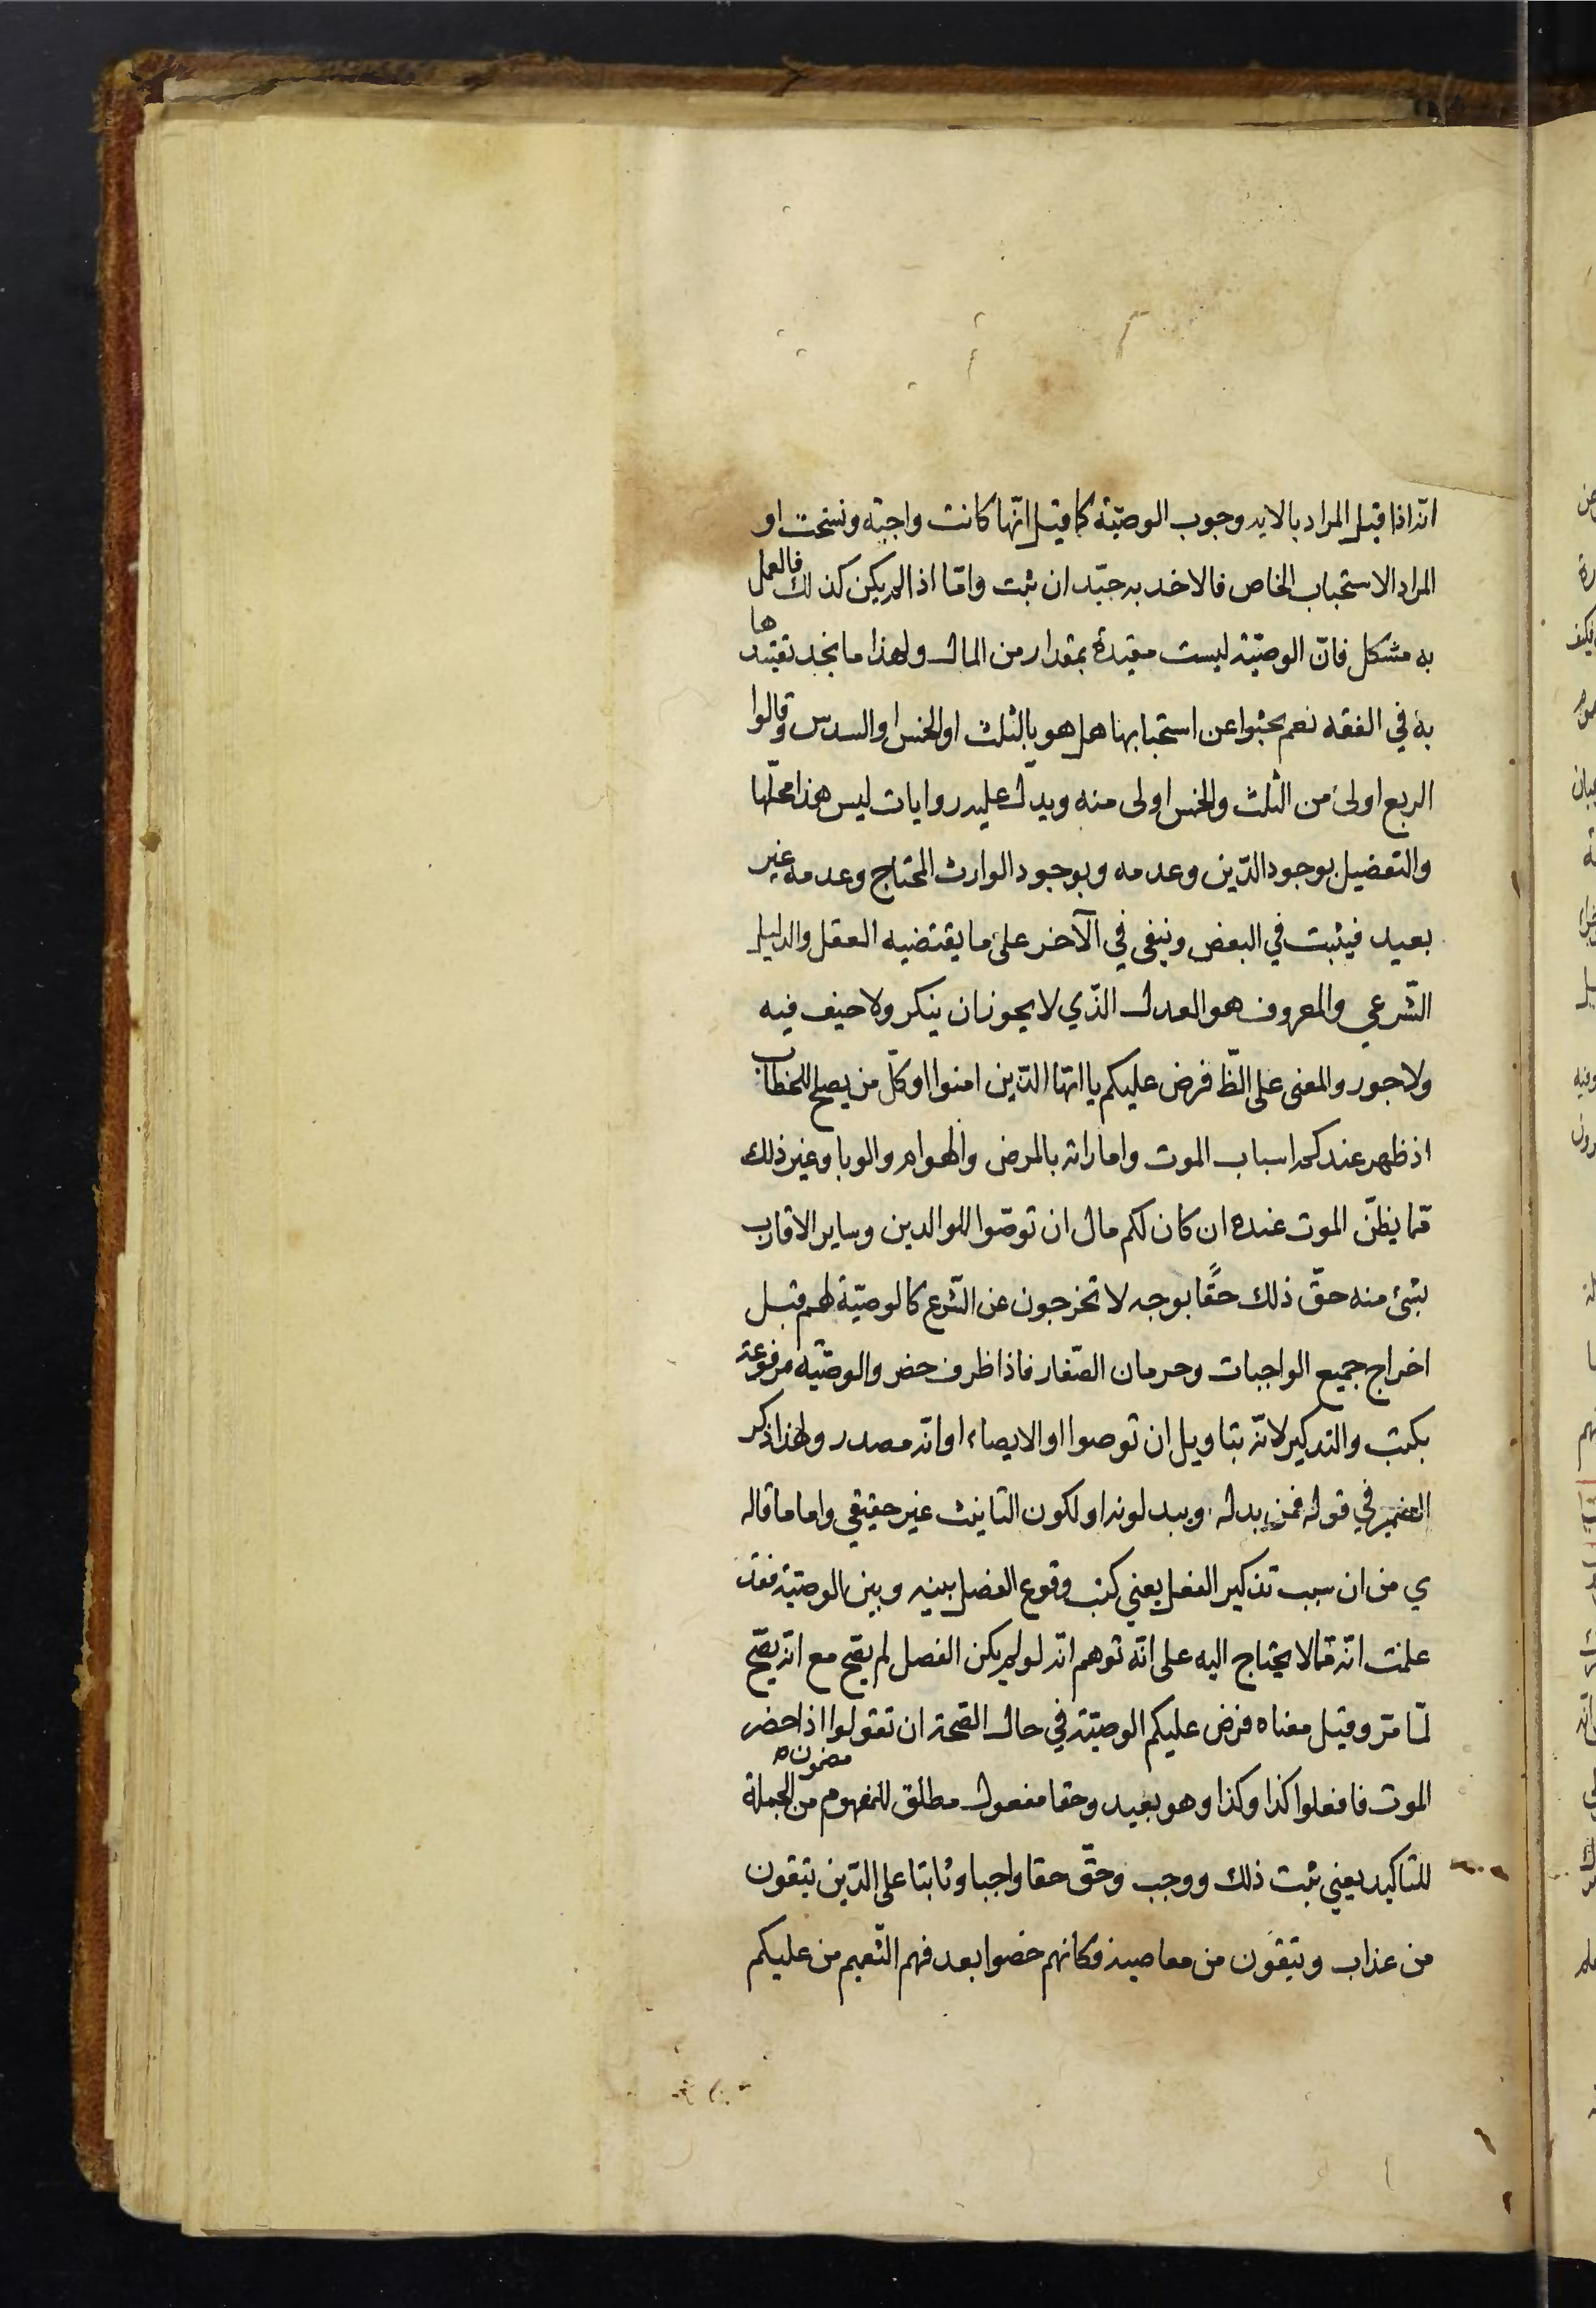 انّه اذا قيل المراد بالايه وجوب الوصيّة كما قيل انّها كانت واجبة ونسخت او
المراد الاستحباب الخاص فالاخد به جيّد ان ثبت وامّا اذا لم يكن كذلك فالعمل
به مشكل فانّ الوصيّة ليست مقيدة بمقدار من المال ولهذا ما نجد تقييدها
به في الفقه نعم بحثوا عن استحبابها هل هو بالثلث او الخمس او السدس وقالوا
الربع اولى من الثلث والخمس اولى منه ويدل عليه روايات ليس هذا محلّها
والتفصيل بوجود الدّين وعدمه وبوجود الوارث المحتاج وعدمه غير
بعيد فيثبت في البعض وينفى في الآخر على ما يقتضيه العقل والدليل
الشّرعي والمعروف هو العدل الذّي لا يجوز ان ينكر ولا حيف فيه
ولا جور والمعنى على الظّ فرض عليكم يا ايّها الذّين امنوا او كلّ من يصلح للخطاب
اذ ظهر عندكم اسباب الموت واماراته بالمرض والهوام والوبا وغير ذلك
ممّا يظنّ الموت عنده ان كان لكم مال ان توصّوا للوالدين وساير الاقارب
بشئ منه حقّ ذلك حقًّا بوجه لا تخرجون عن الشّرع كالوصيّة لهم قبل
اخراج جميع الواجبات وحرمان الصّغار فاذا ظرف حضر والوصيّه مرفوعة
بكتب والتدكير لانّه بتاويل ان توصوا او الايصاء او انّه مصدر ولهذا ذكر
الضمير في قوله فمن بدله ويبدلونه او لكون التانيث غير حقيقي واما ما قاله
ي من ان سبب تذكير الفعل يعني كتب وقوع الفصل بينه وبين الوصيّة فقد
علمت انّه ممّا لا يحتاج اليه على انّه توهم انّه لو لم يكن الفصل لم يصّح مع انّه يصّح
لمّا مرّ وقيل معناه فرض عليكم الوصيّة في حال الصّحة ان تقولوا اذا حضر
الموت فافعلوا كذا وكذا وهو بعيد وحقا مفعول مطلق للمفهوم من مضمون الجملة
للتاكيد يعني ثبت ذلك ووجب وحقّ حقا واجبا وثابتا على الذّين يتقون
من عذاب ويتقون من معاصيه فكانهم خصوا بعد فهم التّعميم من عليكم